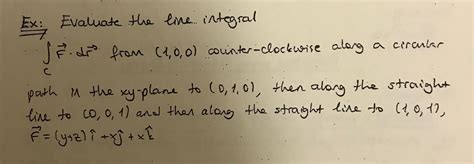 Ex: Evaluate the line integral
∫ F⃗ · dr⃗ from (1,0,0) counter-clockwise along a circular
C
path in the xy-plane to (0,1,0), then along the straight
line to (0,0,1) and then along the straight line to (1,0,1),
F⃗ = (y+z) î + xĵ + xk̂